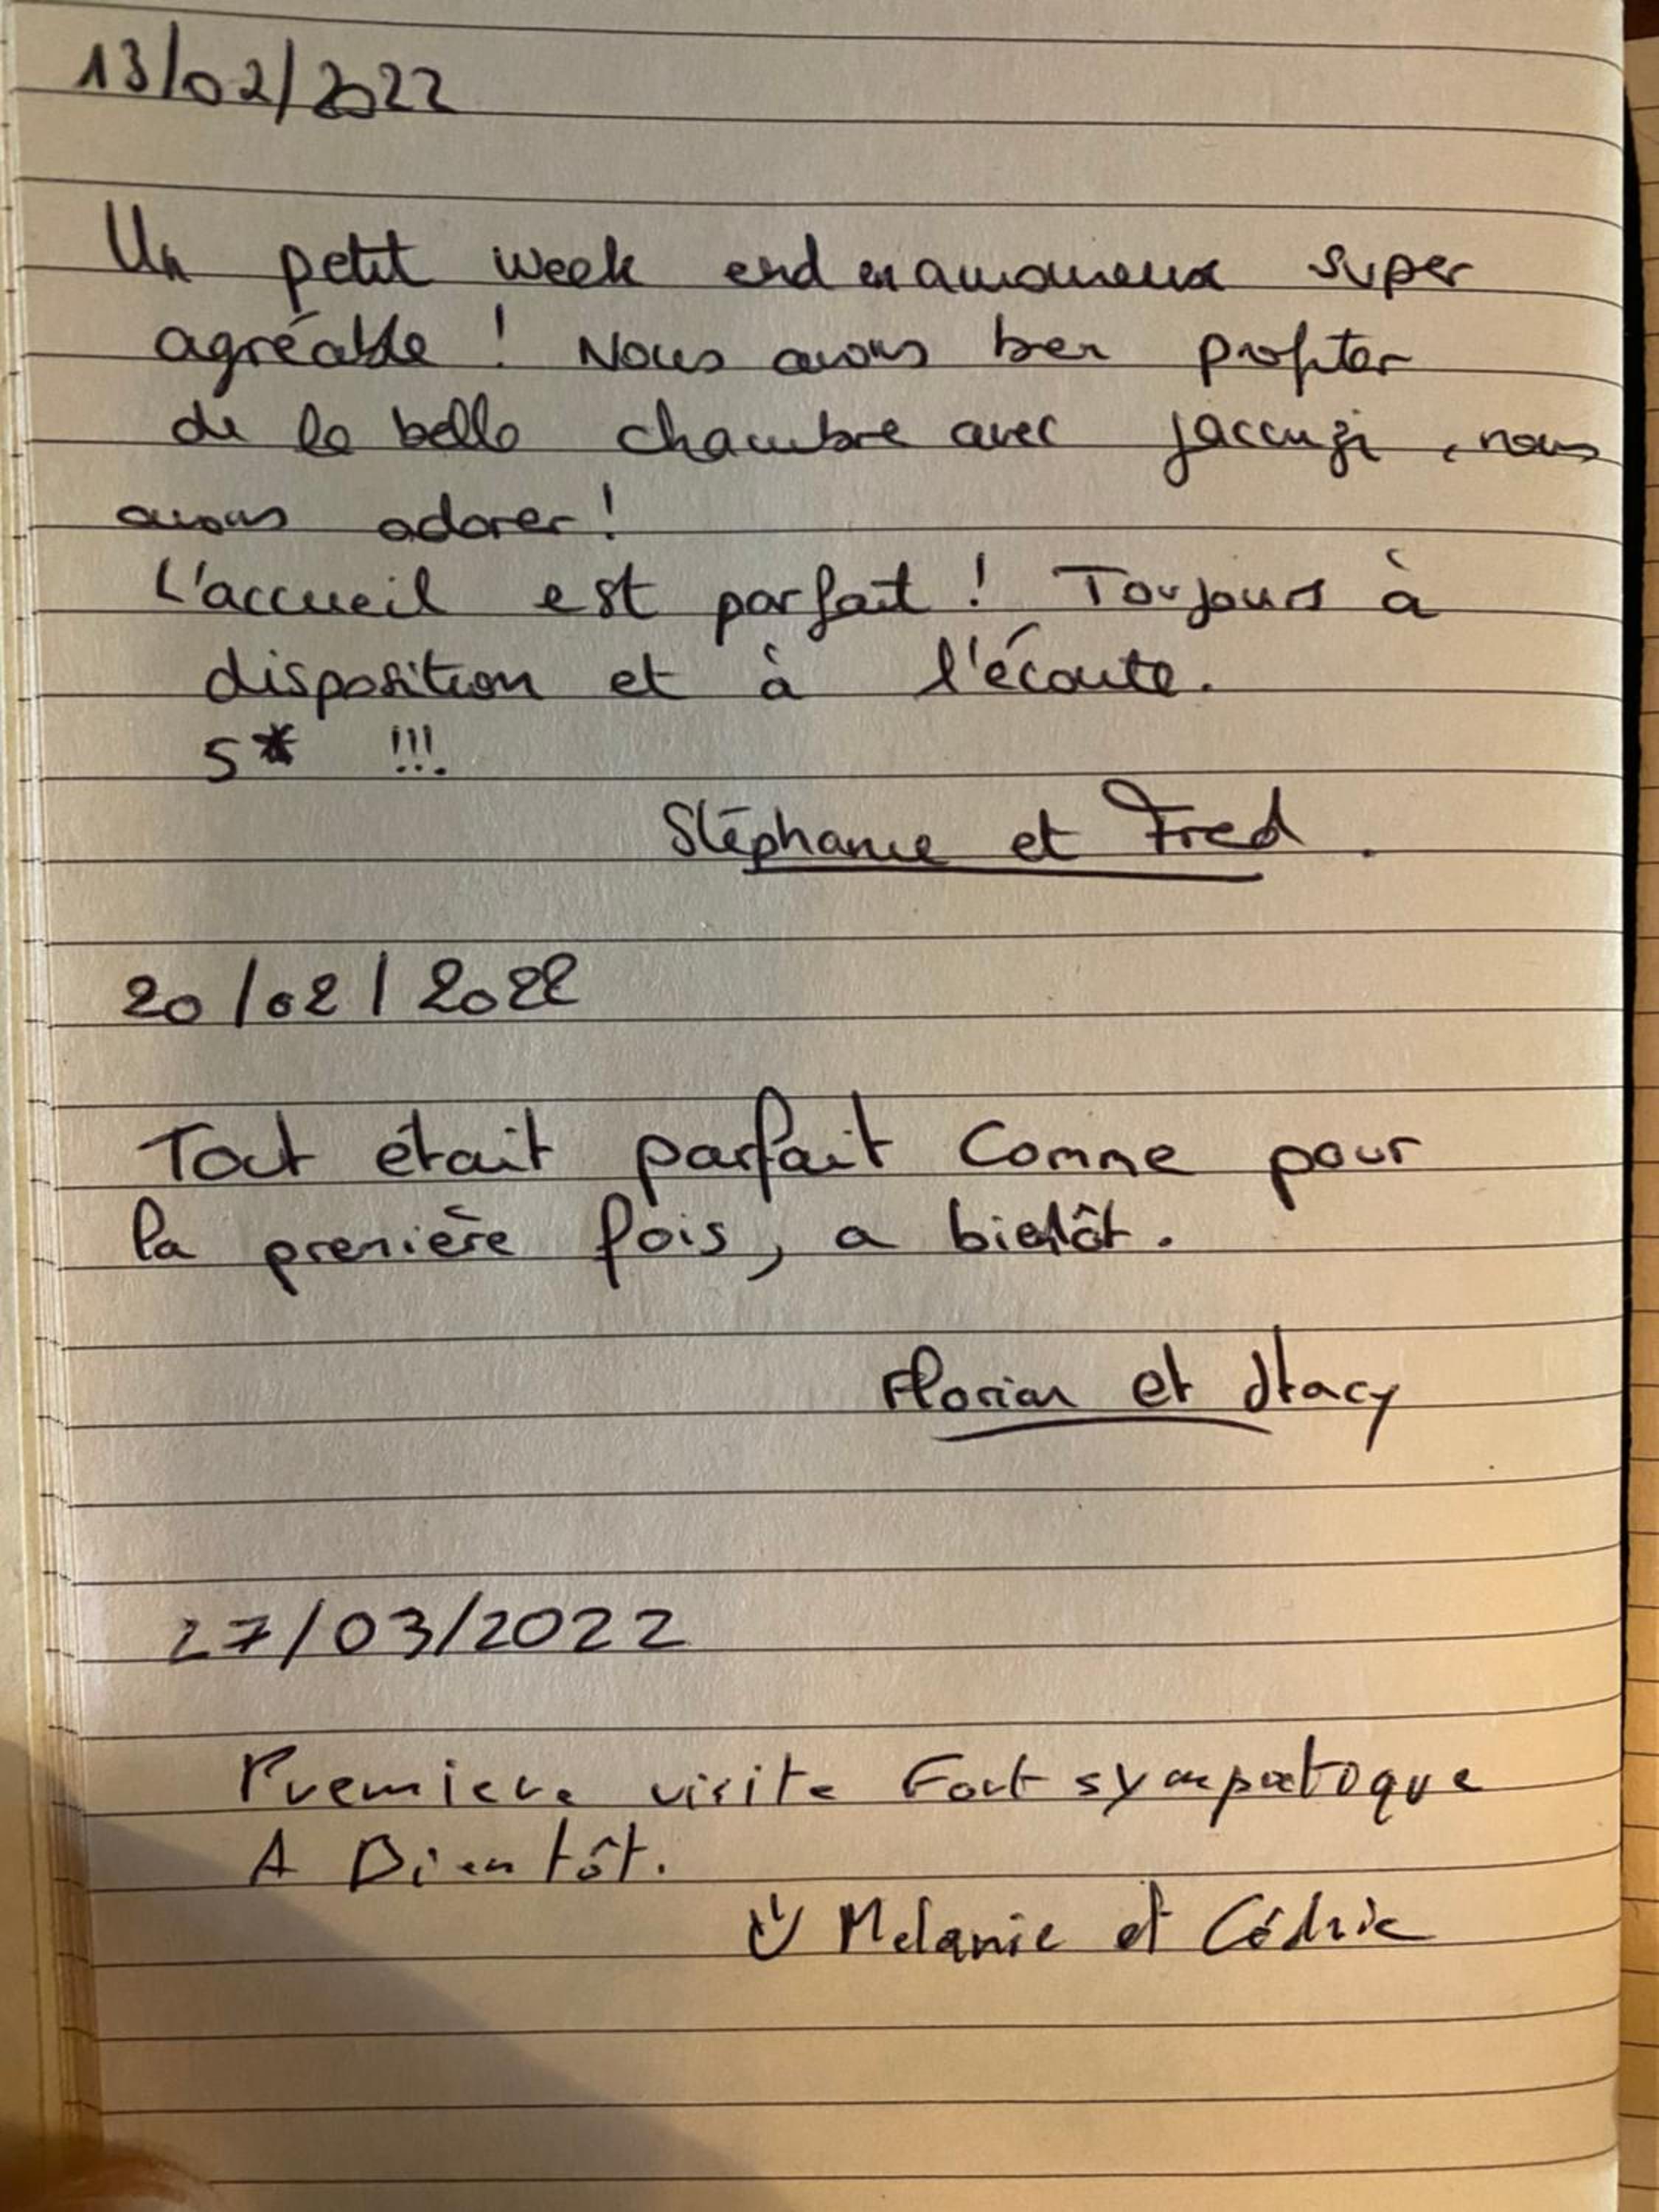 13/02/2022
Un petit week end en amoureux super
agréable ! Nous avons bien profiter
de la belle chambre avec jaccuzi, nous
avons adorer !
L'accueil est parfait ! Toujours à
disposition et à l'écoute.
5* !!!
Stéphanie et Fred.
20/02/2022
Tout était parfait Comme pour
la première fois, a bientôt.
Florian et Stacy
27/03/2022
Premiere visite Fort sympatoque
A Bientôt.
Melanie et Cédric